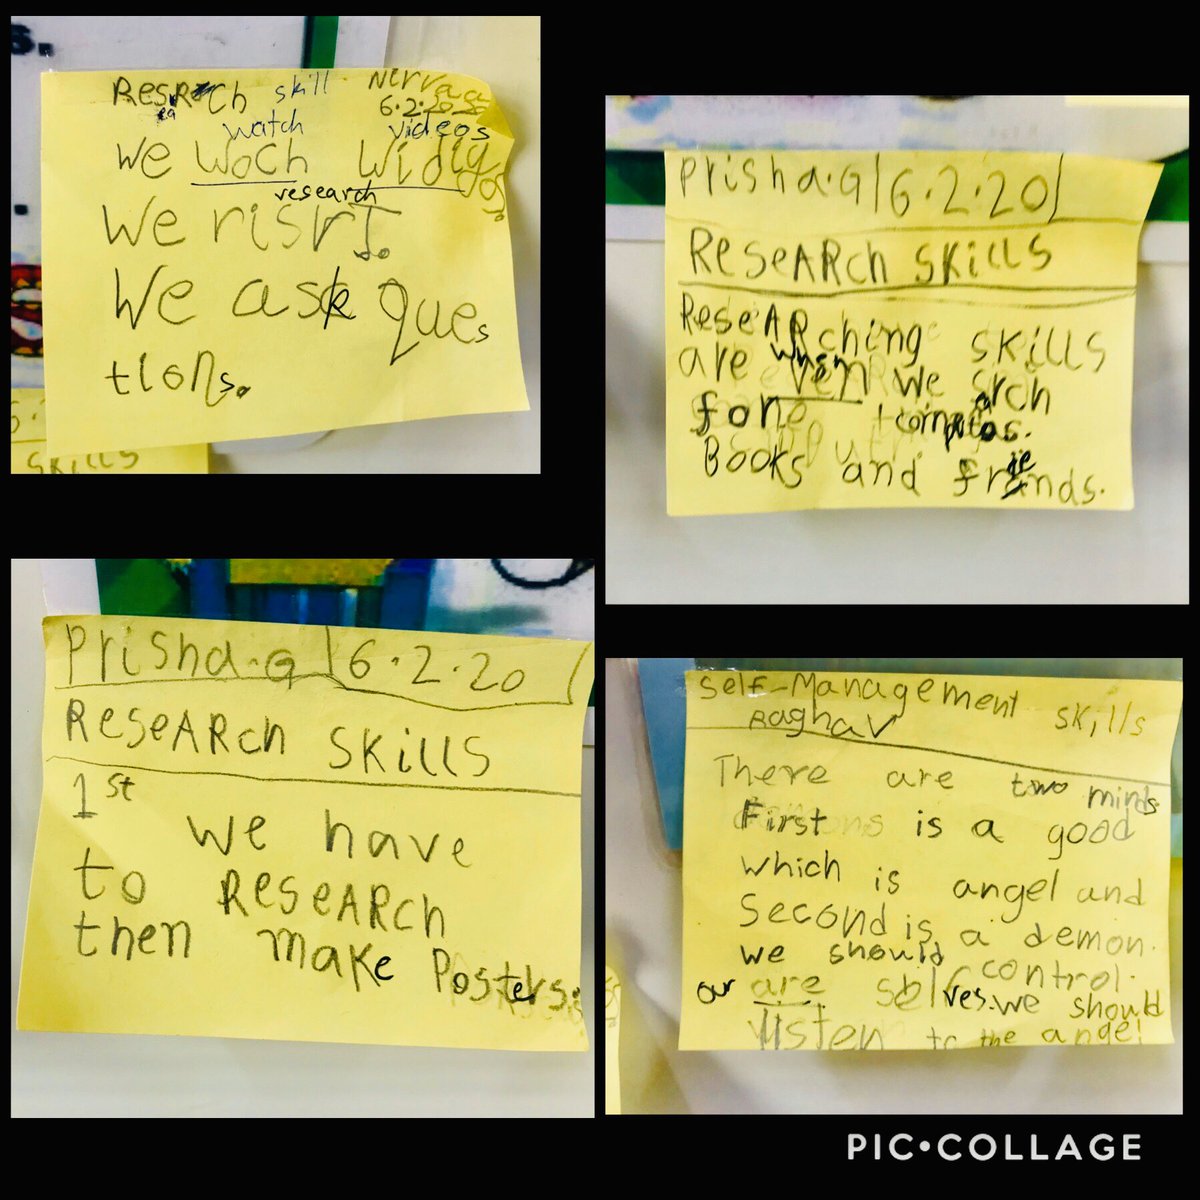 Research skill
6.2.2020
watch videos
We Woch
research
We risrI.
We ask ques
tions.
SKillS
Prisha.G 6.2.20
ReseARch SKillS
ReseARching SKillS
are when we search
fone computas.
Books and friends.
Prisha.G 6.2.20
ReseARch SKillS
1st we have
to ReseARch
then make Posters.
Self-Management skills
Raghav
There are two minds
First is a good
which is angel and
Second is a demon.
we should control.
our are selves. we should
listen to the angel
PIC•COLLAGE